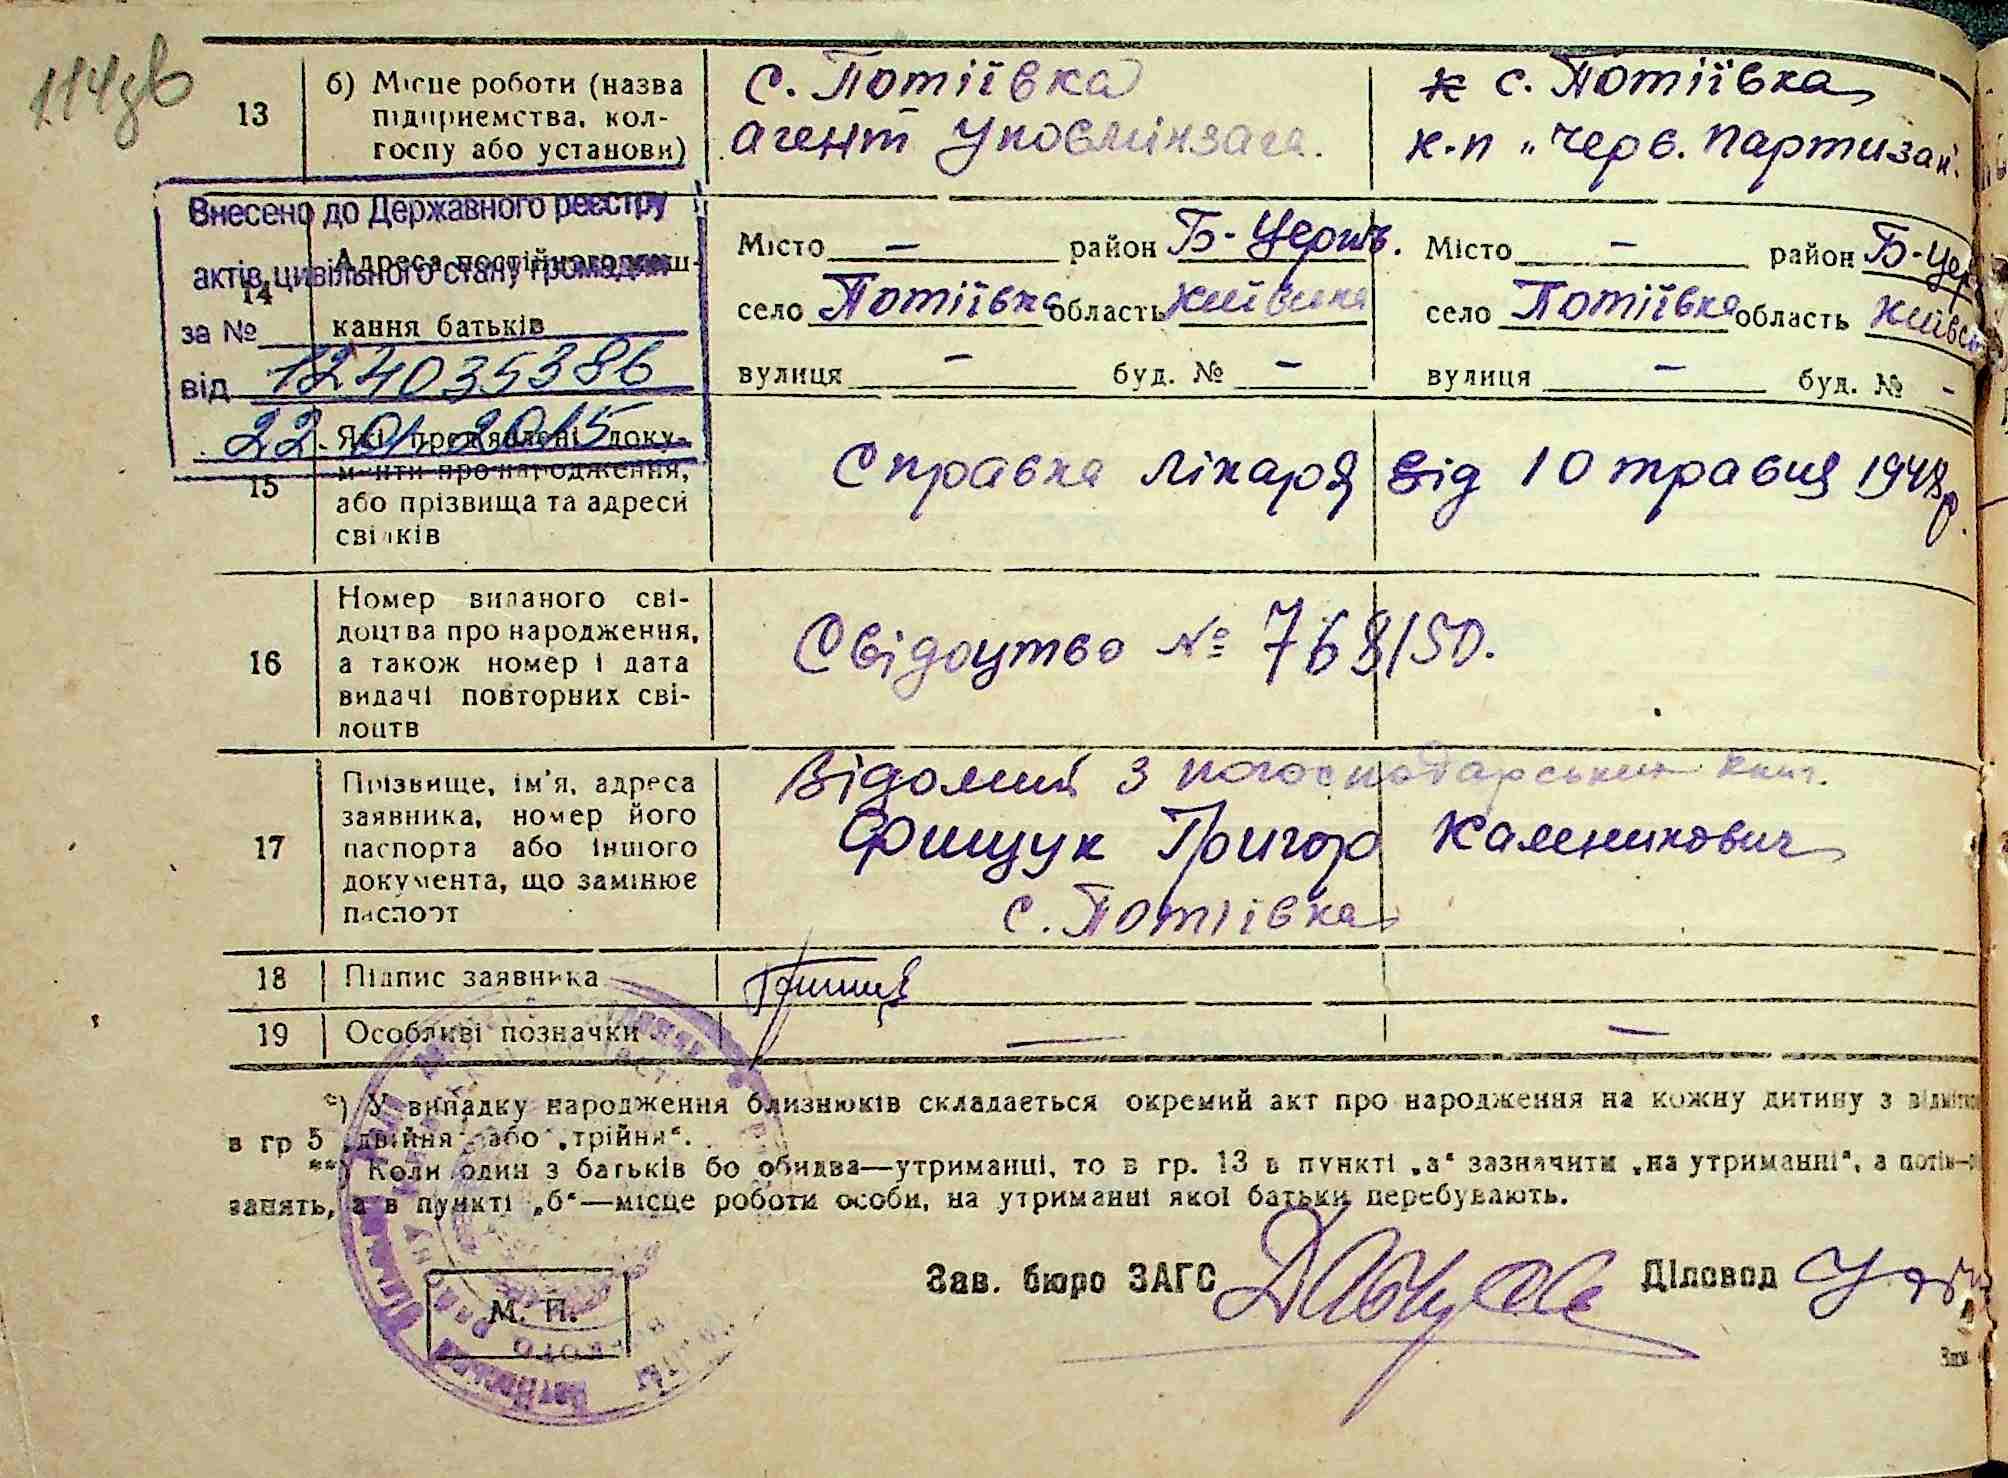 114
13
б) Місце роботи (назва
підприємства, кол-
госпу або установи)
с. Потіївка
агент Уповмінзага.
с. Потіївка
к-п „Черв. Партизан".
Внесено до Державного реєстру
актів цивільного стану громадян
за №
12403538
від
22.01.2015
14
Адреса постійного меш-
кання батьків
Місто — район Б-Церкв.
село Потіївка область Київська
вулиця — буд. № —
Місто — район Б-Цер
село Потіївка область Київсь
вулиця — буд. № —
15
Які пред'явлені доку-
менти про народження,
або прізвища та адреси
свідків
Справка лікаря від 10 травня 1948 р.
16
Номер виданого сві-
доцтва про народження,
а також номер і дата
видачі повторних сві-
доцтв
Свідоцтво № 768/50.
17
Прізвище, ім'я, адреса
заявника, номер його
паспорта або іншого
документа, що замінює
паспорт
Відомий з погосподарських книг.
Фищук Григор Каленикович
с. Потіївка
18
Підпис заявника
19
Особливі позначки
—
—
*) У випадку народження близнюків складається окремий акт про народження на кожну дитину з відмітко
в гр 5 „двійня" або „трійня".
**) Коли один з батьків бо обидва—утриманці, то в гр. 13 в пункті „а" зазначити „на утриманні", а потім
занять, а в пункті „б"—місце роботи особи, на утриманні якої батьки перебувають.
Зав. бюро ЗАГС
Діловод
М. П.